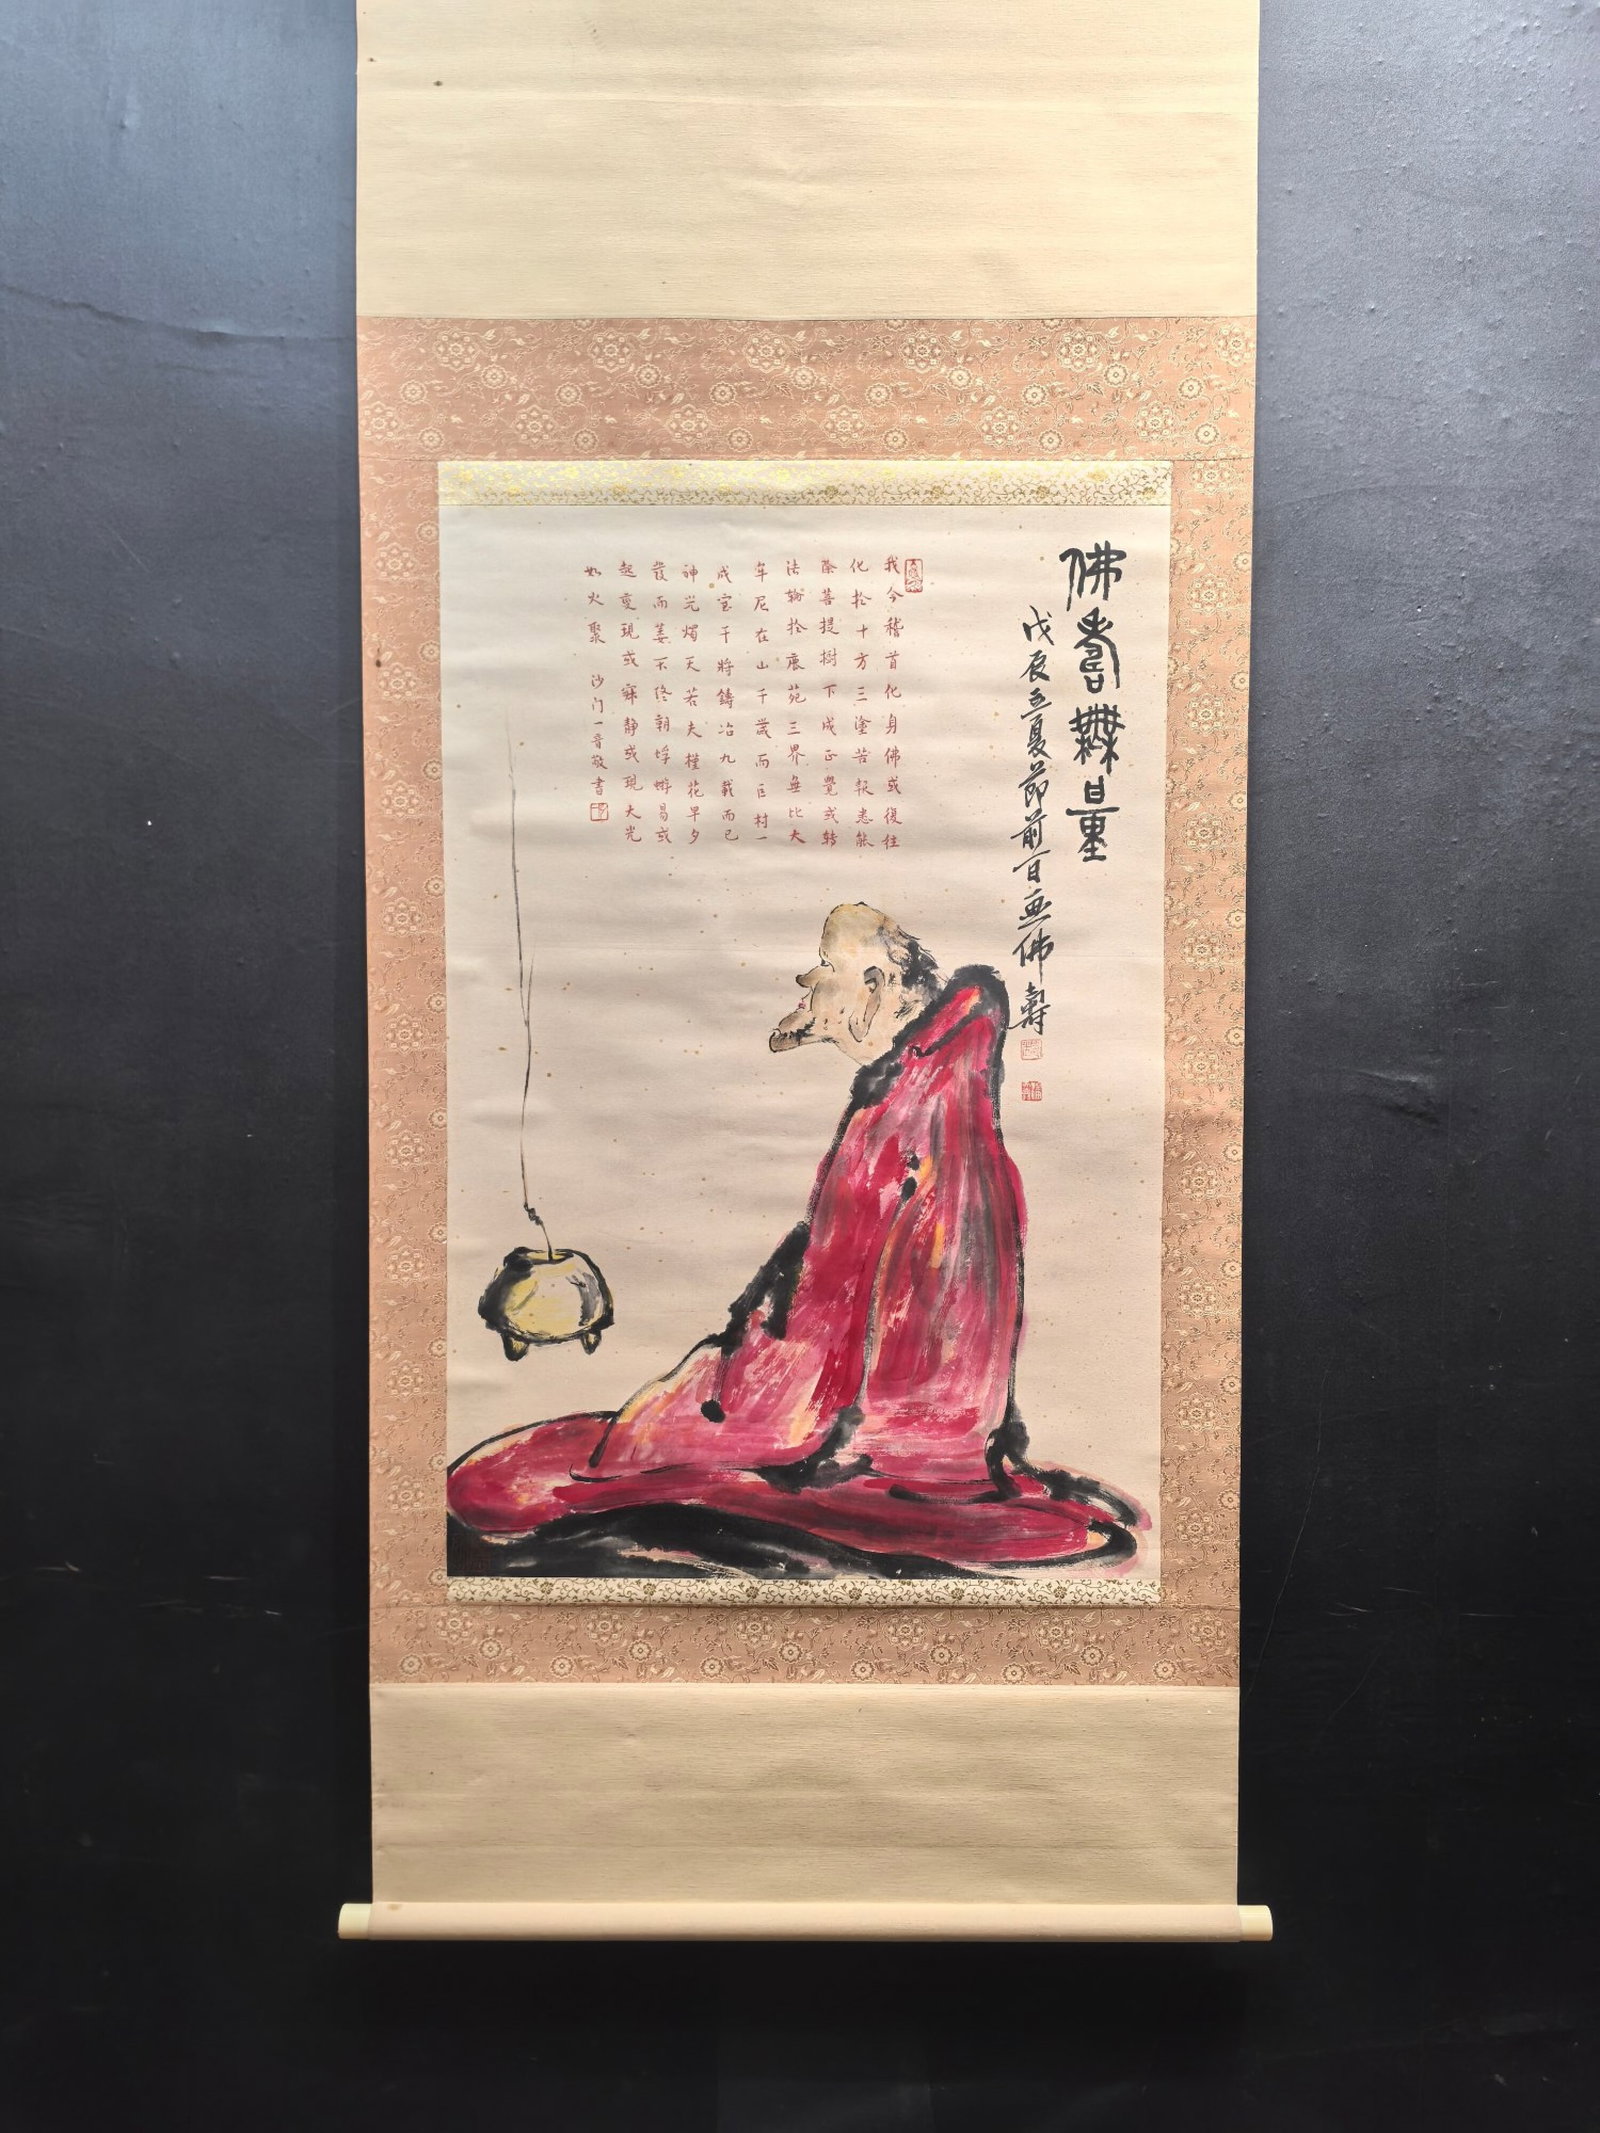 佛壽無量
戊辰立夏節前一日畫佛壽
我今稽首化身佛或復往
化於十方三塗苦報悉能
除菩提樹下成正覺或轉
法輪於鹿苑三界無比大
牟尼在山千歲而巨材一
成宝干將鑄冶九載而已
神光燭天若夫槿花早夕
發而萎不終朝蜉蝣易或
起變現或寂静或現大光
如火聚 沙门一音敬書